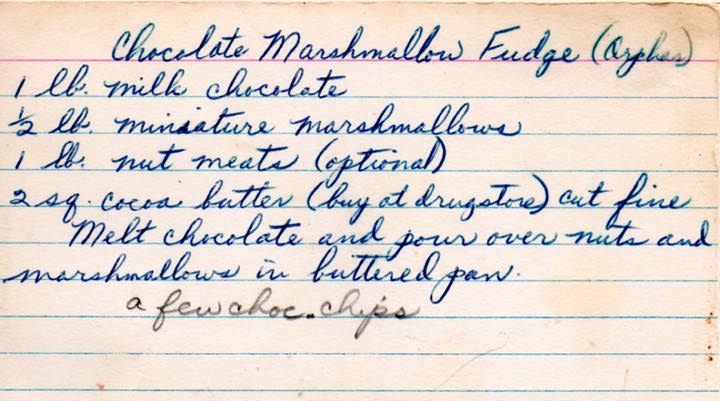 Chocolate Marshmallow Fudge (Orphas)
1 lb. milk chocolate
½ lb. miniature marshmallows
1 lb. nut meats (optional)
2 sq. cocoa butter (buy at drugstore) cut fine
Melt chocolate and pour over nuts and
marshmallows in buttered pan.
a few choc. chips